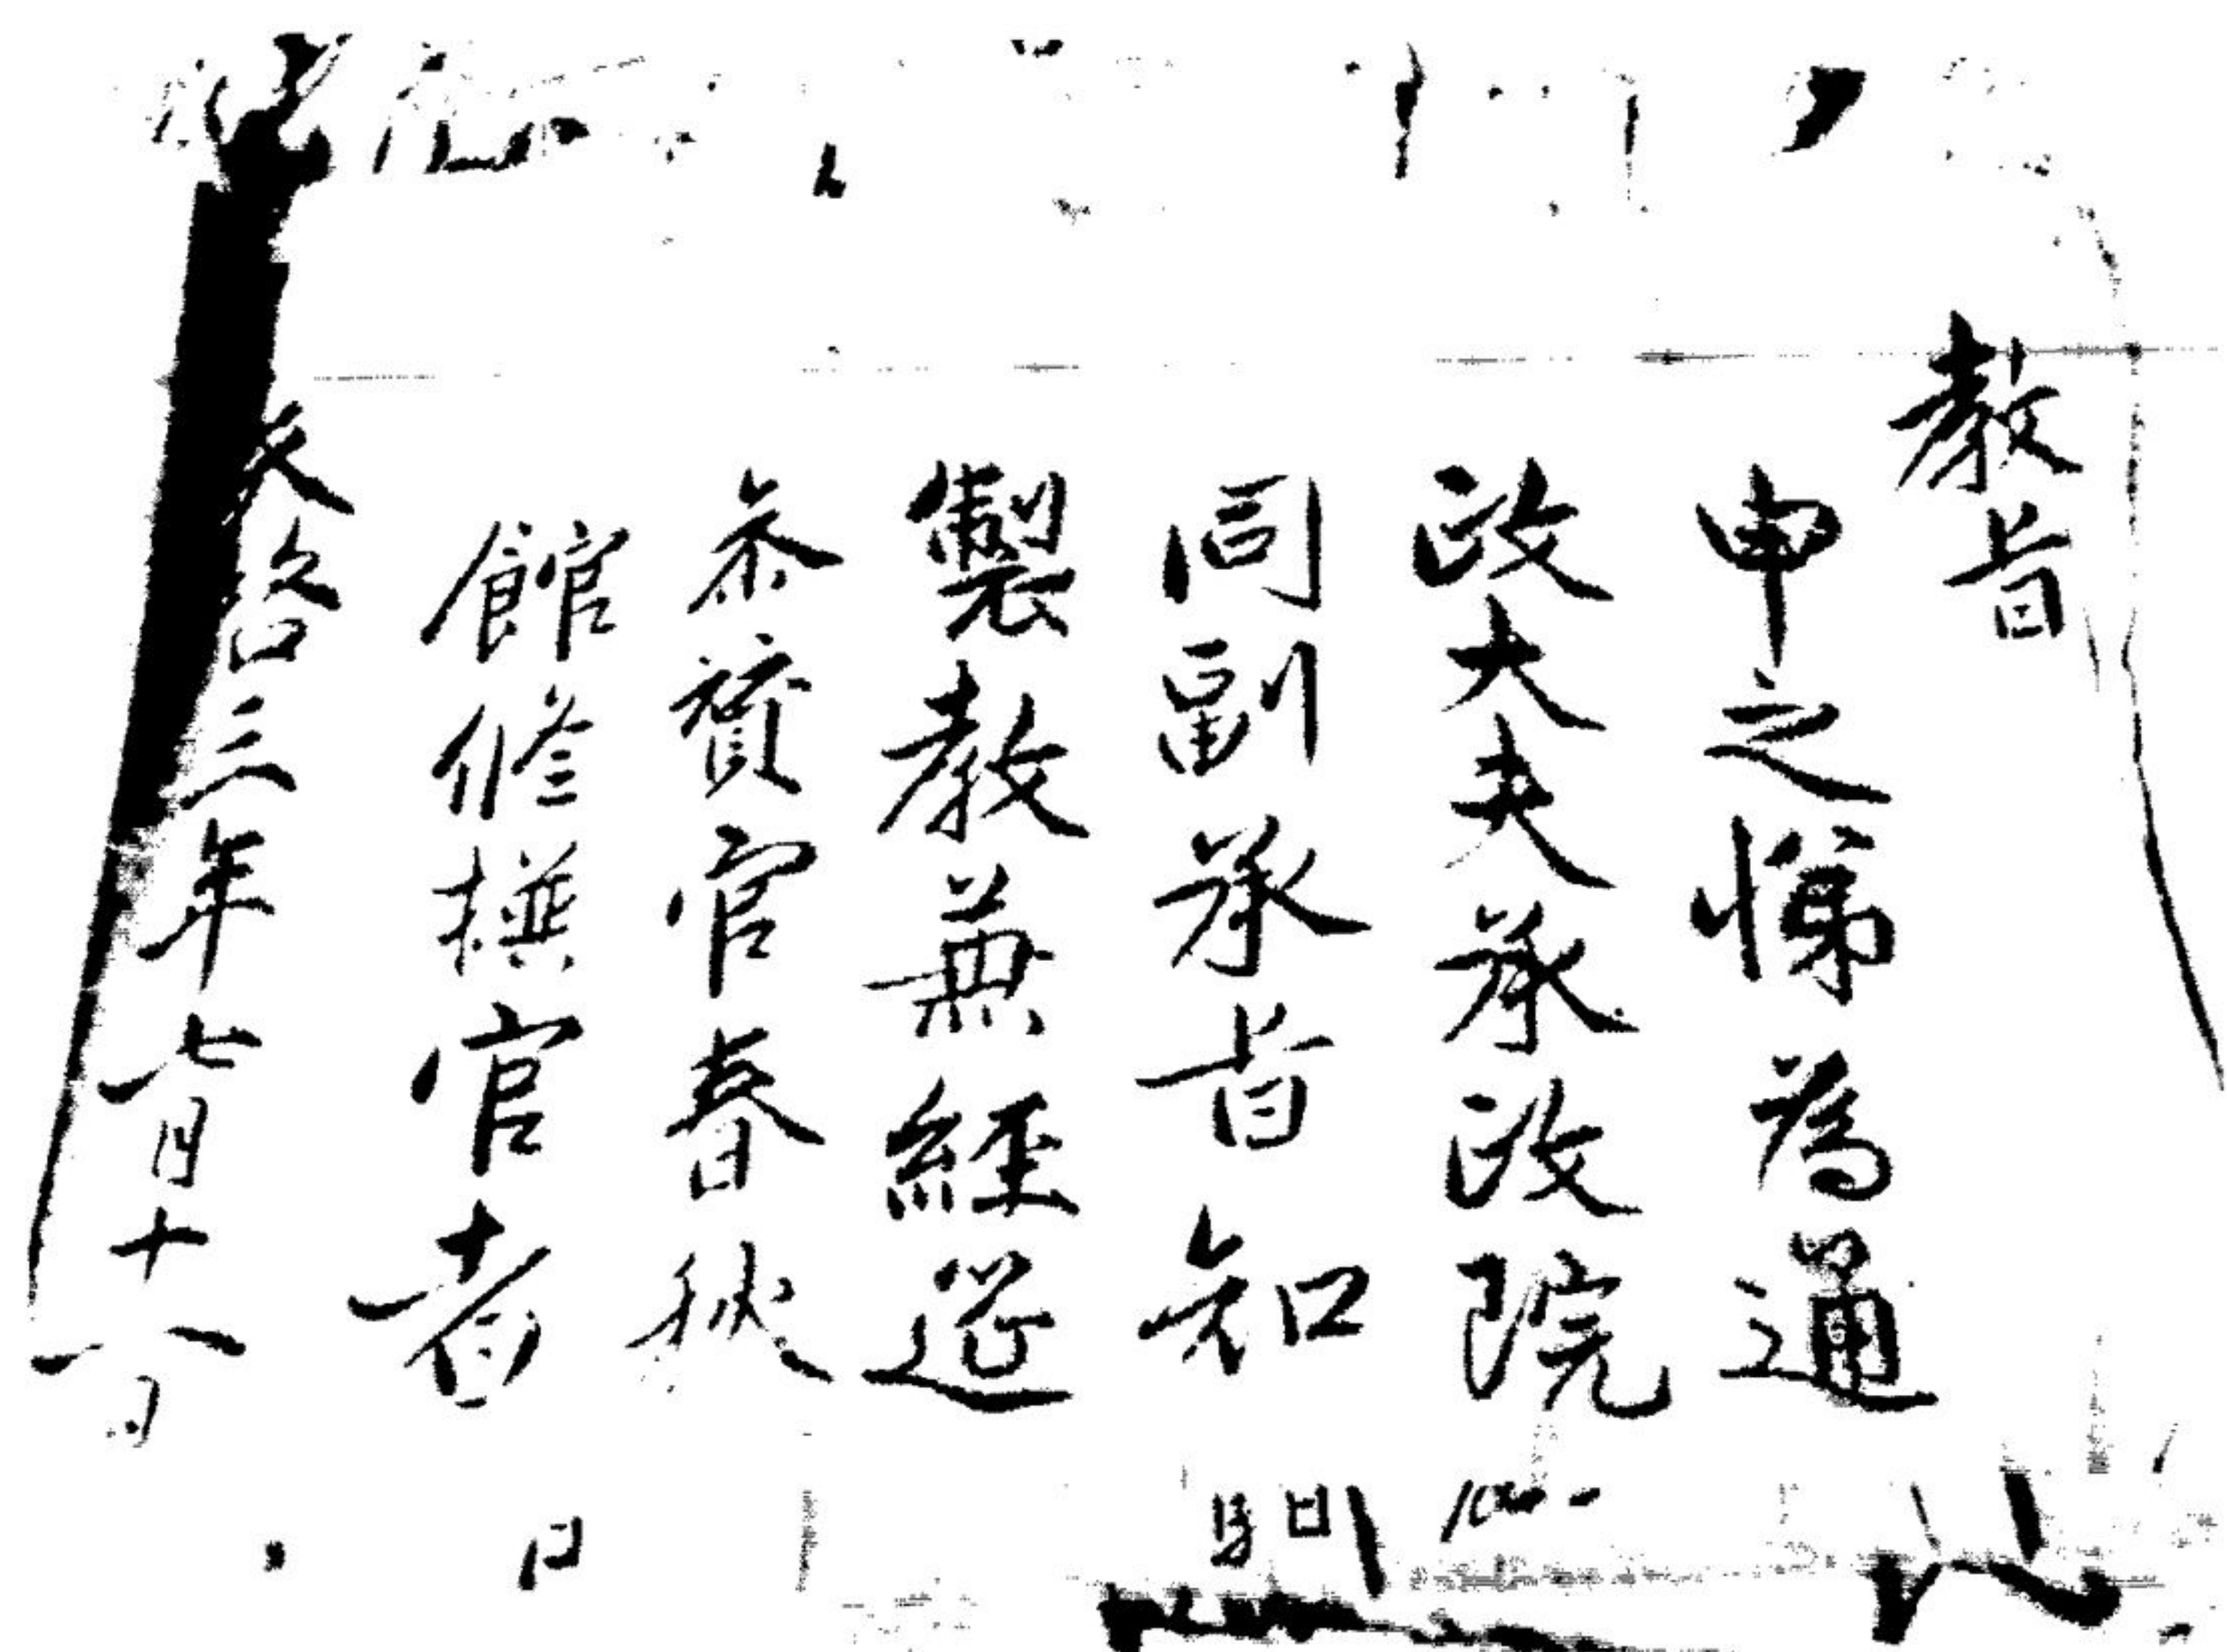 教旨
申之悌為通
政大夫承政院
同副承旨知
製教兼經筵
參贊官春秋
館修撰官者
天啓三年七月十八日